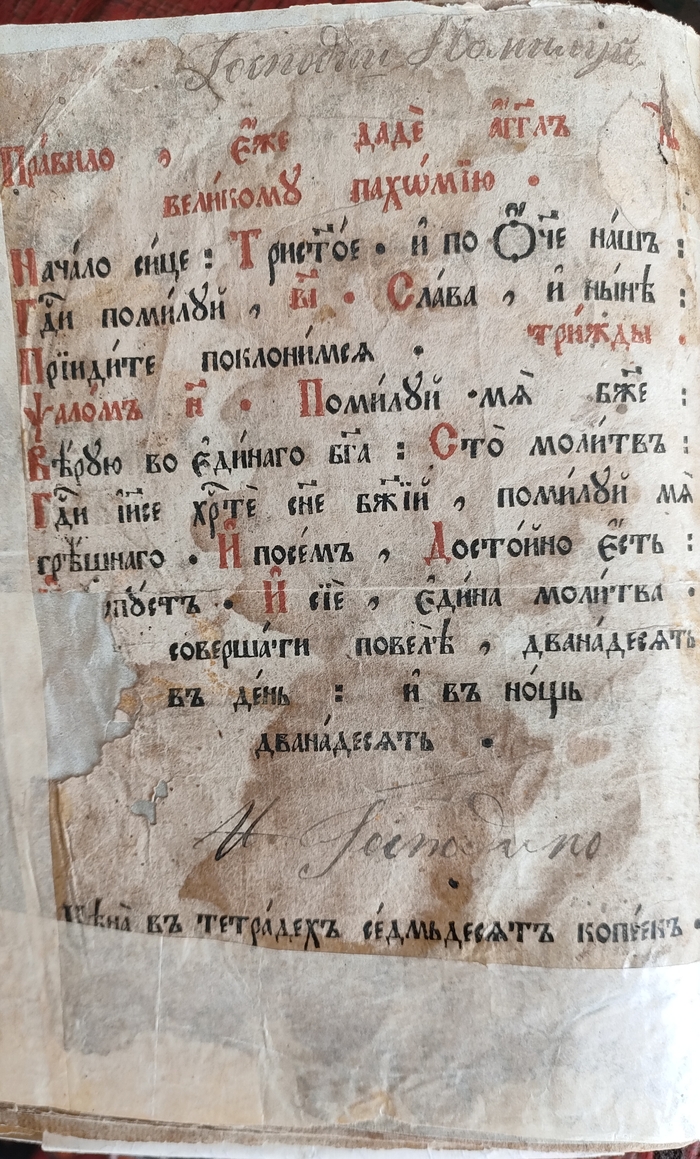 Господи Помилуй
Пра́вило , є҆́же дадѐ а҆́гг҃лъ
вели́кому пахѡ́мїю .
Нача́ло си́це : Трист҃о́е . и҆ по Ѻ҆́ч҃е на́шъ :
Гд҇и поми́луй , в҃і . Сла́ва , и҆ ны́нѣ :
Прїиди́те поклони́мсѧ . три́жды .
Ѱало́мъ н҃ . Поми́луй мѧ̀ бж҃е :
Вѣ́рую во є҆ди́наго бг҃а : Сто̀ моли́твъ :
Гд҇и і҆и҃се хрт҇ѐ сн҃е бж҃їй , поми́луй мѧ̀
грѣ́шнаго . И҆ посе́мъ , Досто́йно є҆́сть :
пу́стъ . И҆ сїѐ , є҆ди́на моли́тва .
соверша́ти повелѣ̀ , двана́десѧть
въ де́нь : и҆ въ но́щь
двана́десѧть .
И. Господи по
Цѣна̀ въ тетра́дехъ се́дмьдесѧтъ копѣ́екъ .